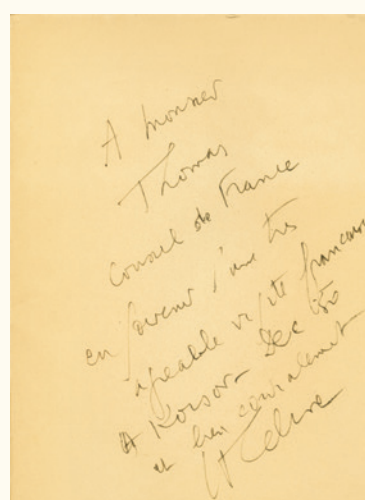 A Monsieur
Thomas
Consul de France
en souvenir d'une très
agréable visite
A Korsor Dec 50
et bien cordialement